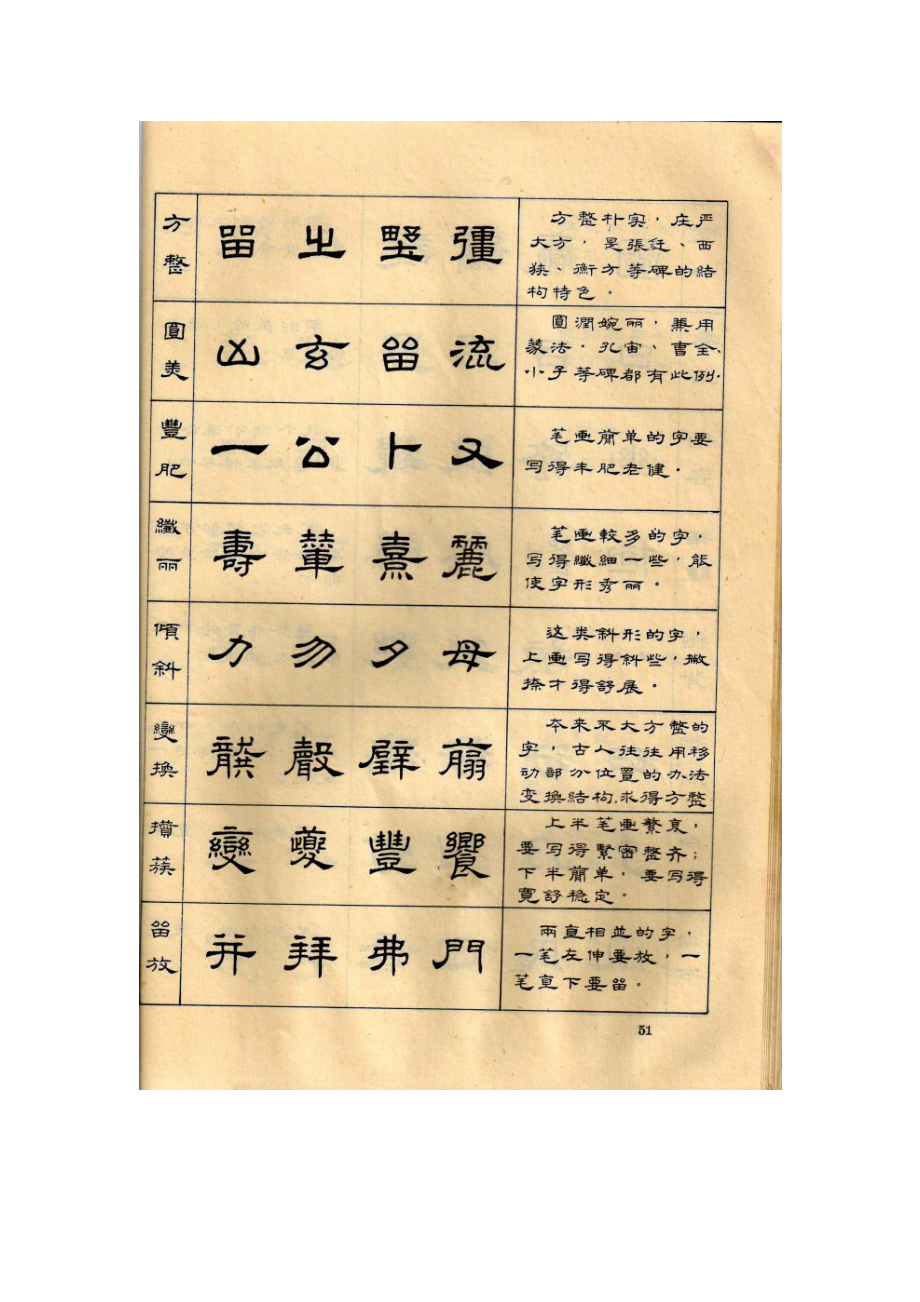 方整
留 之 野 彊
方整朴实，庄严
大方，是張迁、西
狭、衡方等碑的結
构特色。
圓美
凶 玄 留 流
圓潤婉丽，兼用
篆法，孔宙、曹全、
小子等碑都有此例.
豐肥
一 公 卜 又
笔画简单的字要
写得丰肥老健。
纖丽
壽 葦 熹 麗
笔画較多的字，
写得纖細一些，能
使字形秀丽。
傾斜
力 勿 夕 母
这类斜形的字，
上画写得斜些，撇
捺才得舒展。
變換
龔 聲 壁 翦
本来不大方整的
字，古人往往用移
动部分位置的办法
变換結构.求得方整
攢蔟
變 夔 豐 饗
上半笔画繁夐，
要写得緊密整齐；
下半簡单，要写得
寬舒稳定。
留放
并 拜 弗 門
兩直相並的字，
一笔左伸要放，一
笔直下要留。
51